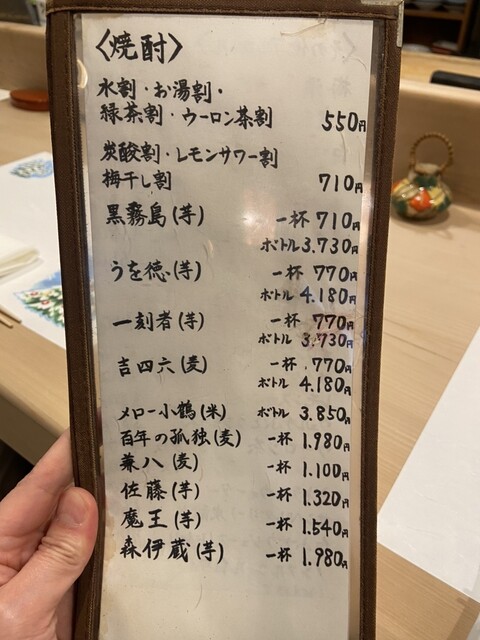 〈焼酎〉
水割・お湯割・
緑茶割・ウーロン茶割 550円
炭酸割・レモンサワー割
梅干し割 710円
黒霧島(芋) 一杯 710円
ボトル 3.730円
うを徳(芋) 一杯 770円
ボトル 4.180円
一刻者(芋) 一杯 770円
ボトル 3.730円
吉四六(麦) 一杯 770円
ボトル 4.180円
メロー小鶴(米) ボトル 3.850円
百年の孤独(麦) 一杯 1.980円
兼八(麦) 一杯 1.100円
佐藤(芋) 一杯 1.320円
魔王(芋) 一杯 1.540円
森伊蔵(芋) 一杯 1.980円